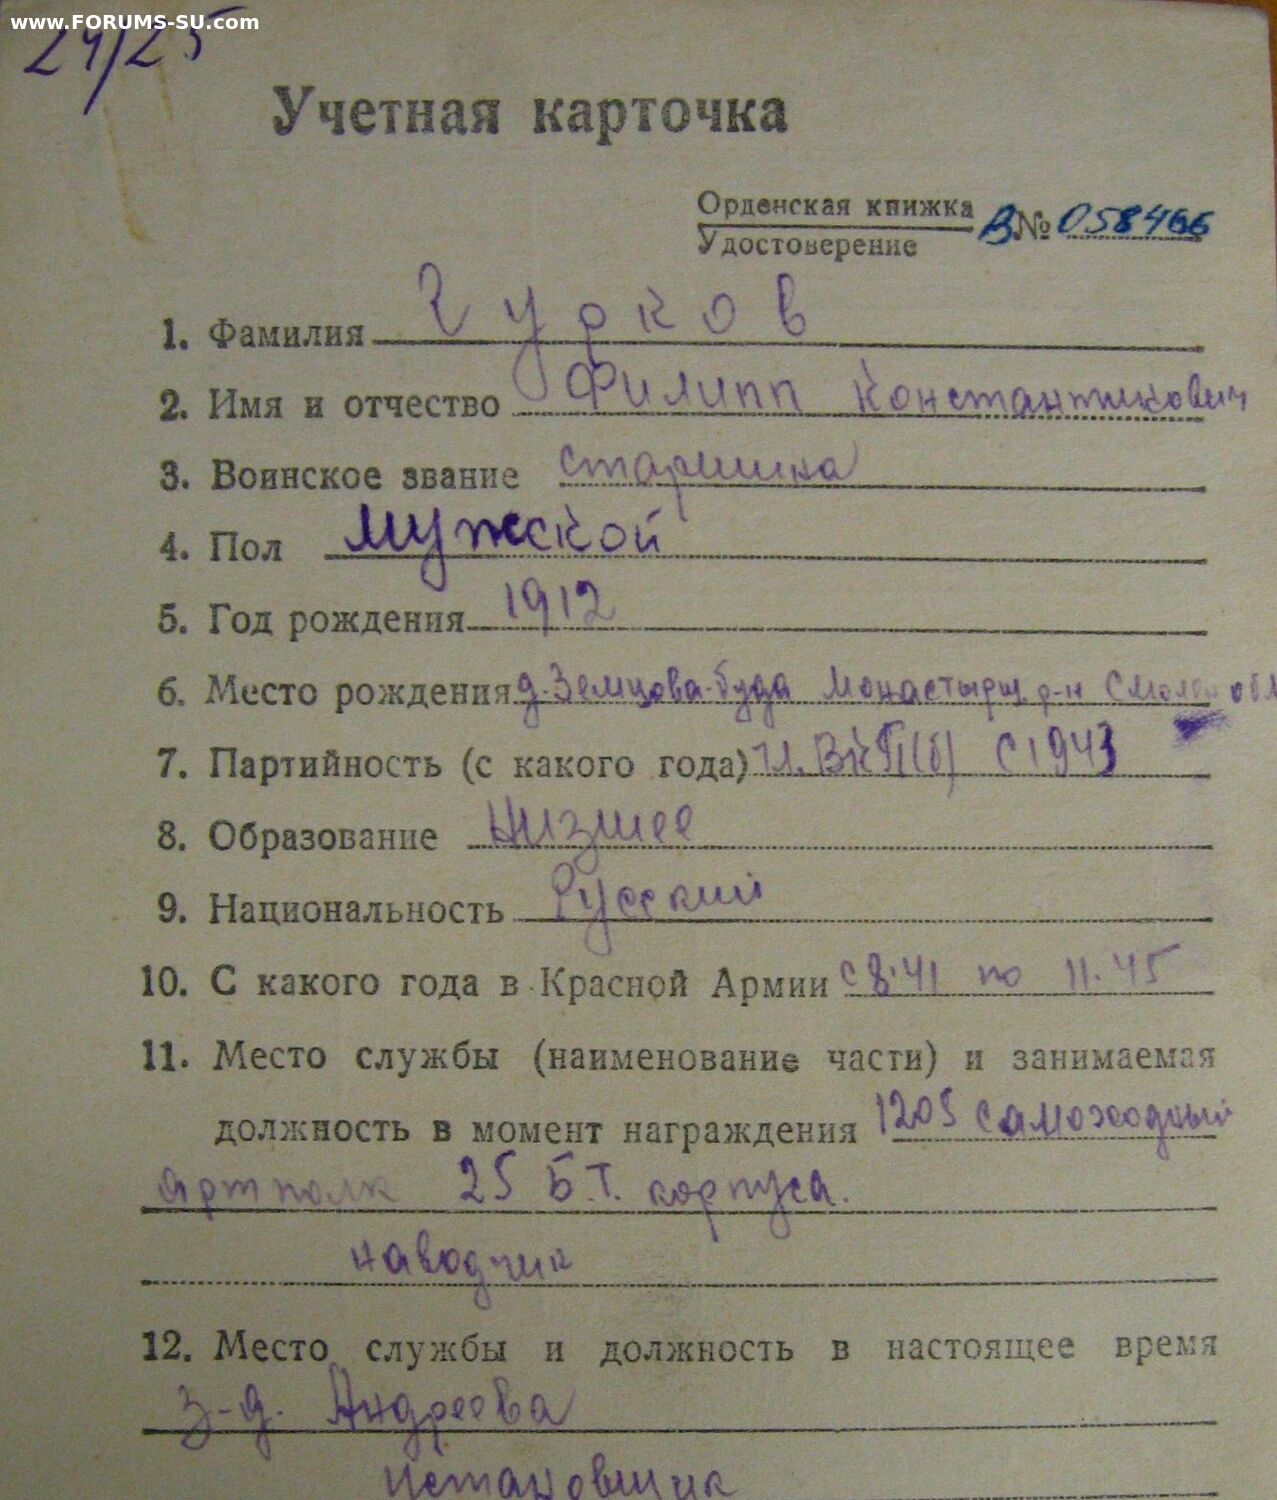 www.FORUMS-SU.com
24/25
Учетная карточка
Орденская книжка
Удостоверение В № 058466
1. Фамилия Гурков
2. Имя и отчество Филипп Константинович
3. Воинское звание старшина
4. Пол мужской
5. Год рождения 1912
6. Место рождения д. Земцова-буда Монастырщ. р-н Смолен обл
7. Партийность (с какого года) чл. ВКП(б) с 1943
8. Образование низшее
9. Национальность Русский
10. С какого года в Красной Армии с 8.41 по 11.45
11. Место службы (наименование части) и занимаемая
должность в момент награждения 1205 самоходный
артполк 25 Б.Т. корпуса.
наводчик
12. Место службы и должность в настоящее время
з-д. Андреева